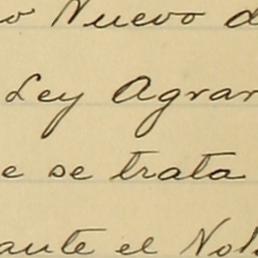 o Nuevo d
Ley Agrar
e se trata
ante el No